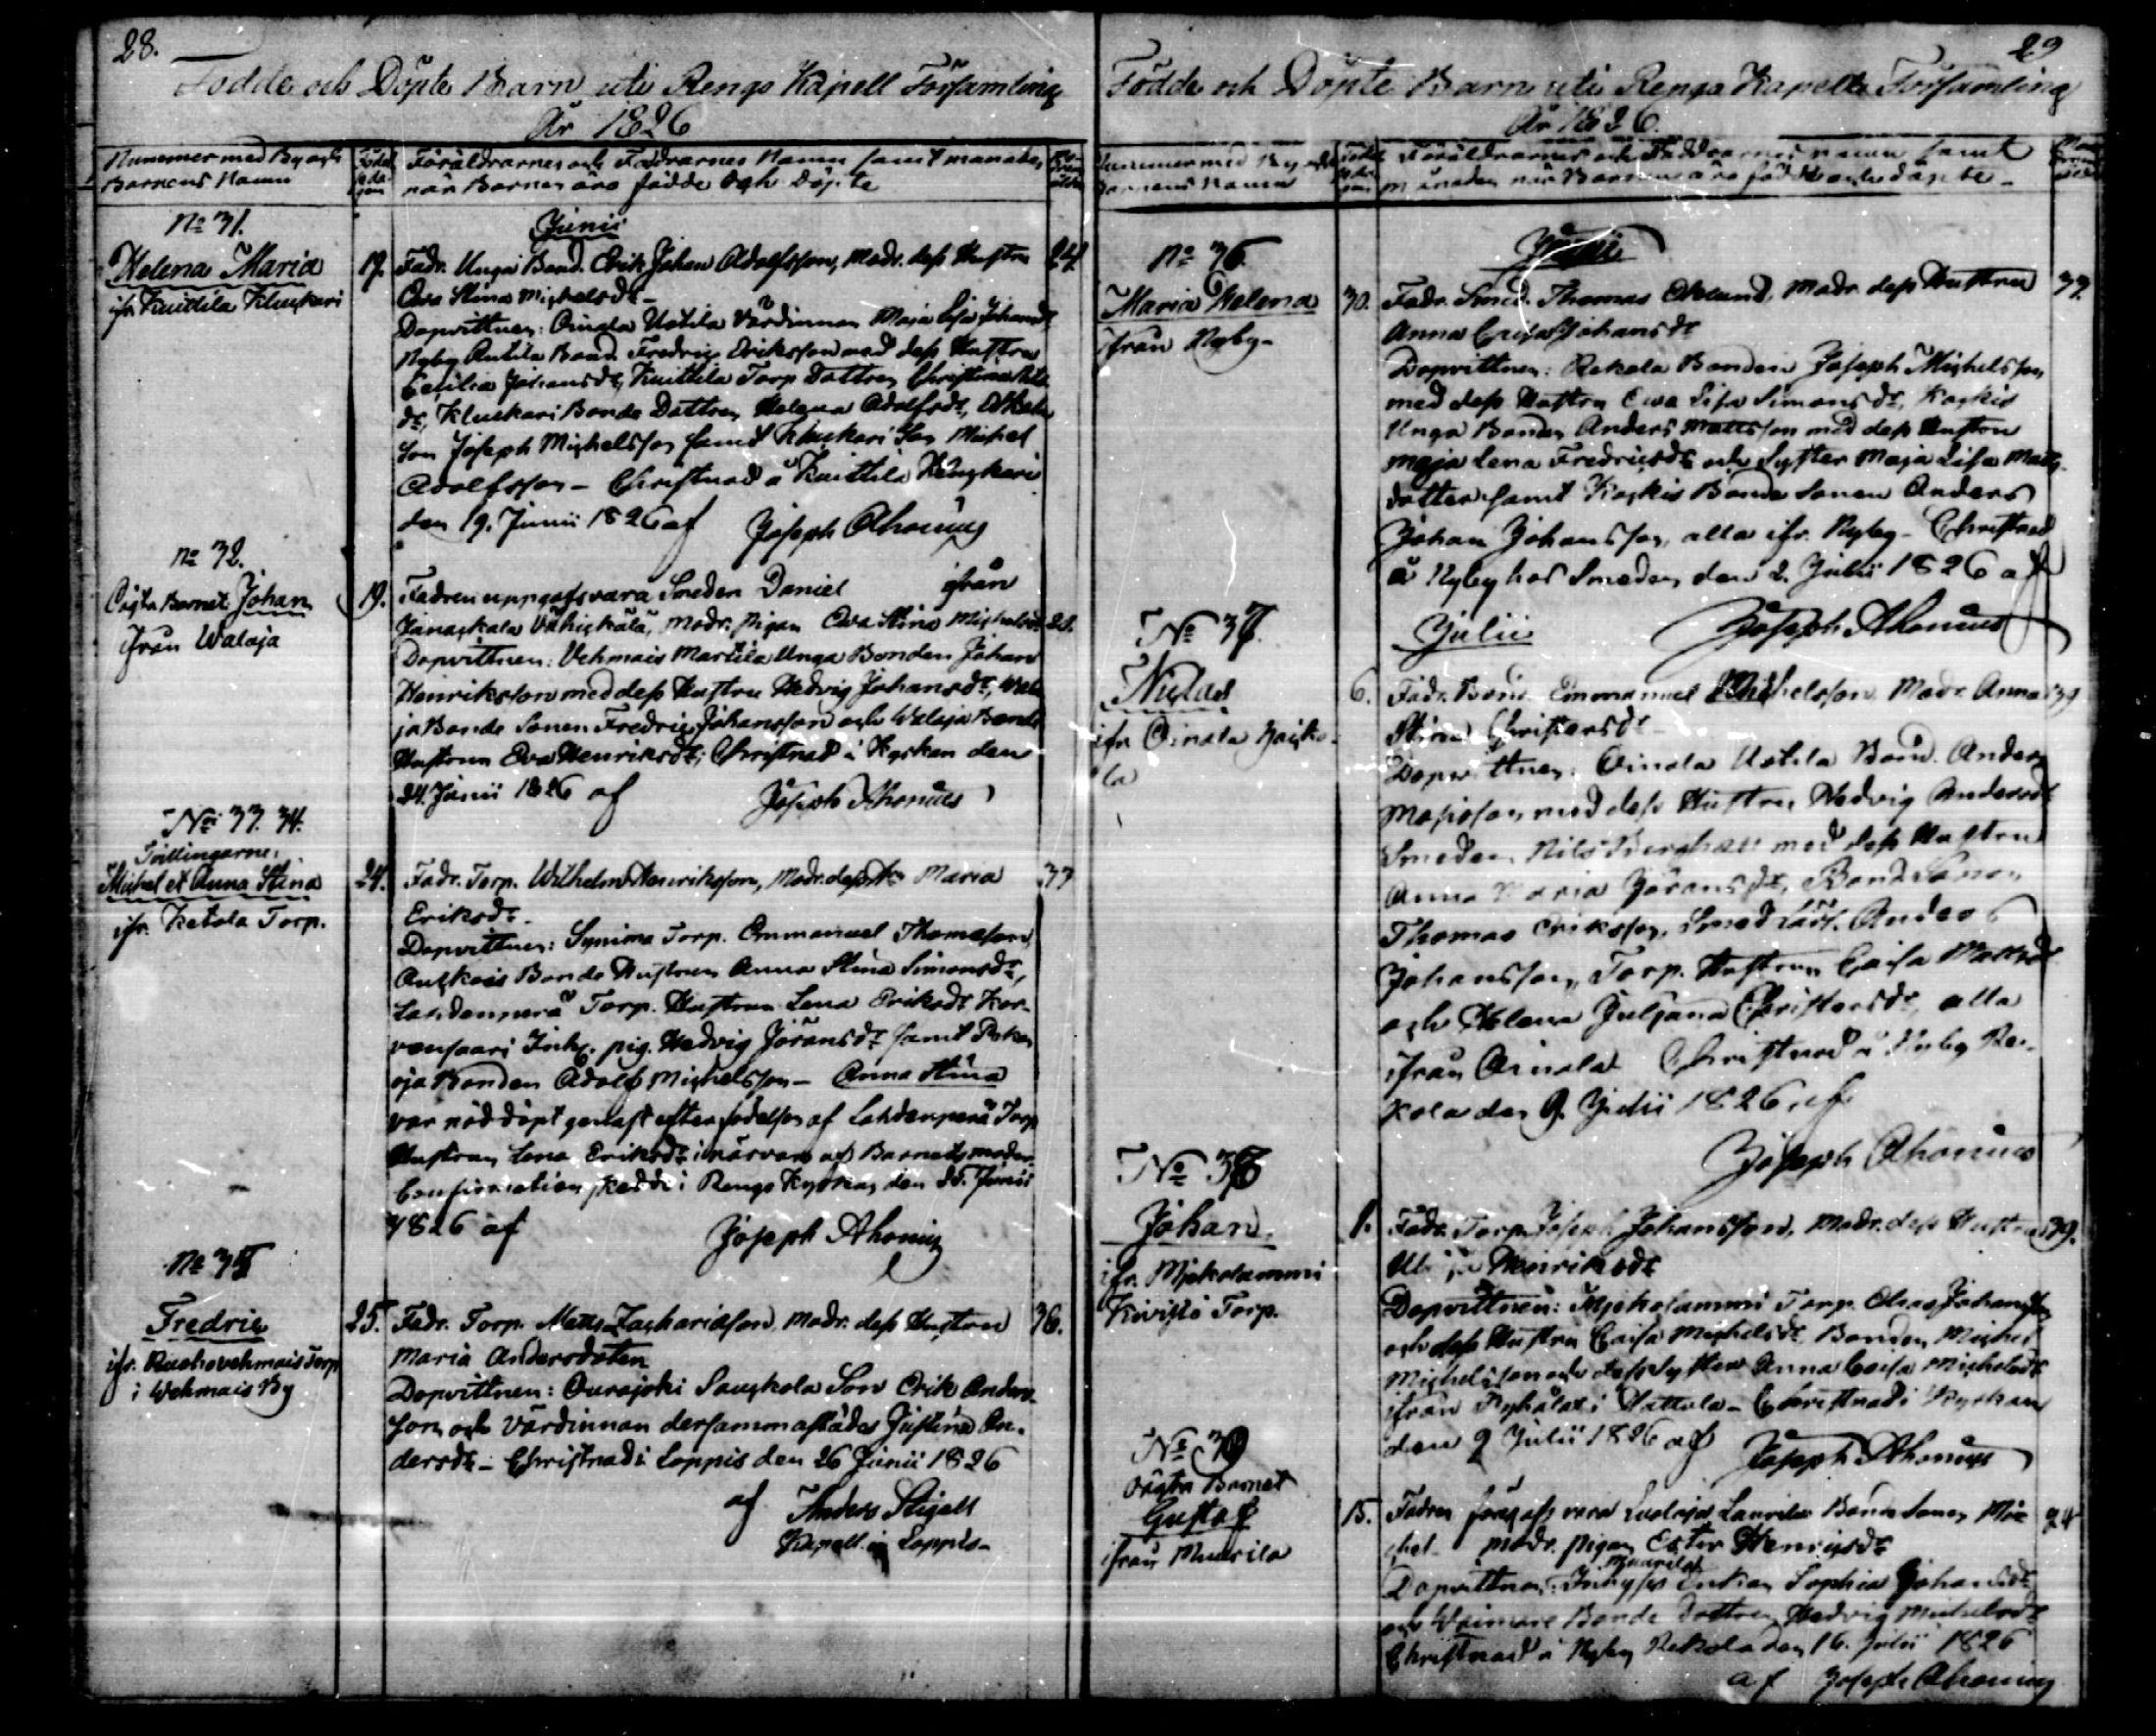 28.
Födde och Döpte Barn uti Rengo Kapell Församling
År 1826
Nummer med By och
Barnens Namn
Föräldrarnes och Faddrarnes Namn samt månaden
när Barnen äro födde och Döpte
Junii
No 31.
Helena Maria
ifr. Kuittila Kluckari
17. Fadr. Unga Bond. Erik Johan Adolfsson, Modr. dess Hustru 24
Eva Stina Michelsdr
Dopvittnen: Oinala Uotila Värdinnan Maja Lisa Johansdr
Nyby Anttila Bond. Fredric Eriksson med dess Hustru
Cecilia Johansdr, Kuittila Torp Dottren Christina
dr, Kluckari Bonde Dottren Helena Adolfsdr,
Son Joseph Michelsson samt Kluckari Son Michel
Adolfsson - Christnad å Kuittila Kluckari
den 19. Junii 1826 af Joseph Ahonius
No 32.
Oägta Barnet Johan
ifrån Walaja
19. Fadren uppgafs vara Smeden Daniel ifrån
Janackala Vähickälä, Modr. pigan Eva Stina Michelsdr 28.
Dopvittnen: Vehmais Marttila Unga Bonden Johan
Henriksson med dess Hustru Hedvig Johansdr, Wala
ja Bonde Sonen Fredric Johansson och Walaja Bonde
Hustrun Eva Henriksdr; Christnad i Kyrkan den
24. Junii 1826 af Joseph Ahonius
No 33. 34.
Tvillingarne,
Michel et Anna Stina
ifr. Ketola Torp.
24. Fadr. Torp. Wilhelm Henriksson, Modr. dess Maria 33
Eriksdr.
Dopvittnen: Torp. Emmanuel Thomasson,
Bonde Hustrun Anna Stina Simonsdr,
Lahdenperä Torp. Hustrun Lena Eriksdr Kor-
vensaari Inh. pig. Hedvig Göransdr samt
oja Bonden Adolf Michelsson - Anna Stina
var nöddöpt genast efter födelsen af Lahdenperä Torp
Hustrun Lena Eriksdr i närvaro af Barnets moder
Confirmation skedde i Rengo Kyrkan den 25. Junii
1826 af Joseph Ahonius
No 35
Fredric
ifr. Ruohovehmais Torp
i Wehmais By
25. Fadr. Torp. Matts Zachariasson, Modr. dess Hustru 36.
Maria Andersdoter
Dopvittnen: Ourajoki Son Erik Anders-
son och Värdinnan dersammastädes Justina An-
dersdr - Christnad i Loppis den 26 Junii 1826
af Anders Stigell
Kapell. in Loppis
29
Födde och Döpte Barn uti Rengo Kapells Församling
År 1826.
Nummer med By och
Barnens Namn
Föräldrarnes och Faddrarnes namn samt
Månaden när Barnen äro födde och döpte -
Junii
No 36.
Maria Helena
ifrån Nyby -
30. Fadr. Smed. Thomas Eklund, Modr. dess Hustru 37
Anna Caisa Johansdr
Dopvittnen: Rekola Bonden Joseph Michelsson
med dess Hustru Eva Lisa Simonsdr, Koskis
Unga Bonden Anders Mattsson med dess Hustru
Maja Lena Fredricsdr och Syster Maja Lisa Matts-
dotter samt Koskis Bonde Sonen Anders
Johan Johansson, alla ifr. Nyby - Christnad
å Nyby hos Smeden den 2. Julii 1826 af
Joseph Ahonius
Julii
No 37.
ifr. Oinala
la
6. Fadr. Bond. Emmanuel Michelsson. Modr. Anna 39
Stina Christersdr
Dopvittnen: Oinala Uotila Bond. Anders
med dess Hustru Hedvig Andersdr
Smeden Nils Berghäll med dess Hustru
Anna Maria Göransdr, Bond Sonen
Thomas Eriksson, Smed Lärl. Anders
Johansson, Torp. Hustrun Caisa Mattsdr
och Helena Juljana Christersdr, alla
ifrån Oinala Christnad å Nyby Re-
kola den 9. Julii 1826 af
Joseph Ahonius
No 38
Johan
ifr. Mjekolammi
Kivistö Torp.
1. Fadr. Torp. Joseph Johansson, Modr. dess Hustru 39.
Henriksdr
Dopvittnen: Mjekolammi Torp. Johansson
och dess Hustru Caisa Michelsdr Bonden Michel
Michelsson och dess Syster Anna Caisa Michelsdr
ifrån i Hattula - Christnad i Kyrkan
den 9 Julii 1826 af Joseph Ahonius
No 39
Oägta Barnet
Gustaf
ifrån Muurila
15. Fadren föregafs vara Laurila Bonde Sonen Mi- 24
chel - modr. pigan Ester Henricsdr
Muurila
Dopvittnen: Inhyses Enkan Sophia Johansdr
och Bonde Dottren Hedvig Michelsdr
Christnad å Nyby Rekola den 16. Julii 1826
af Joseph Ahonius